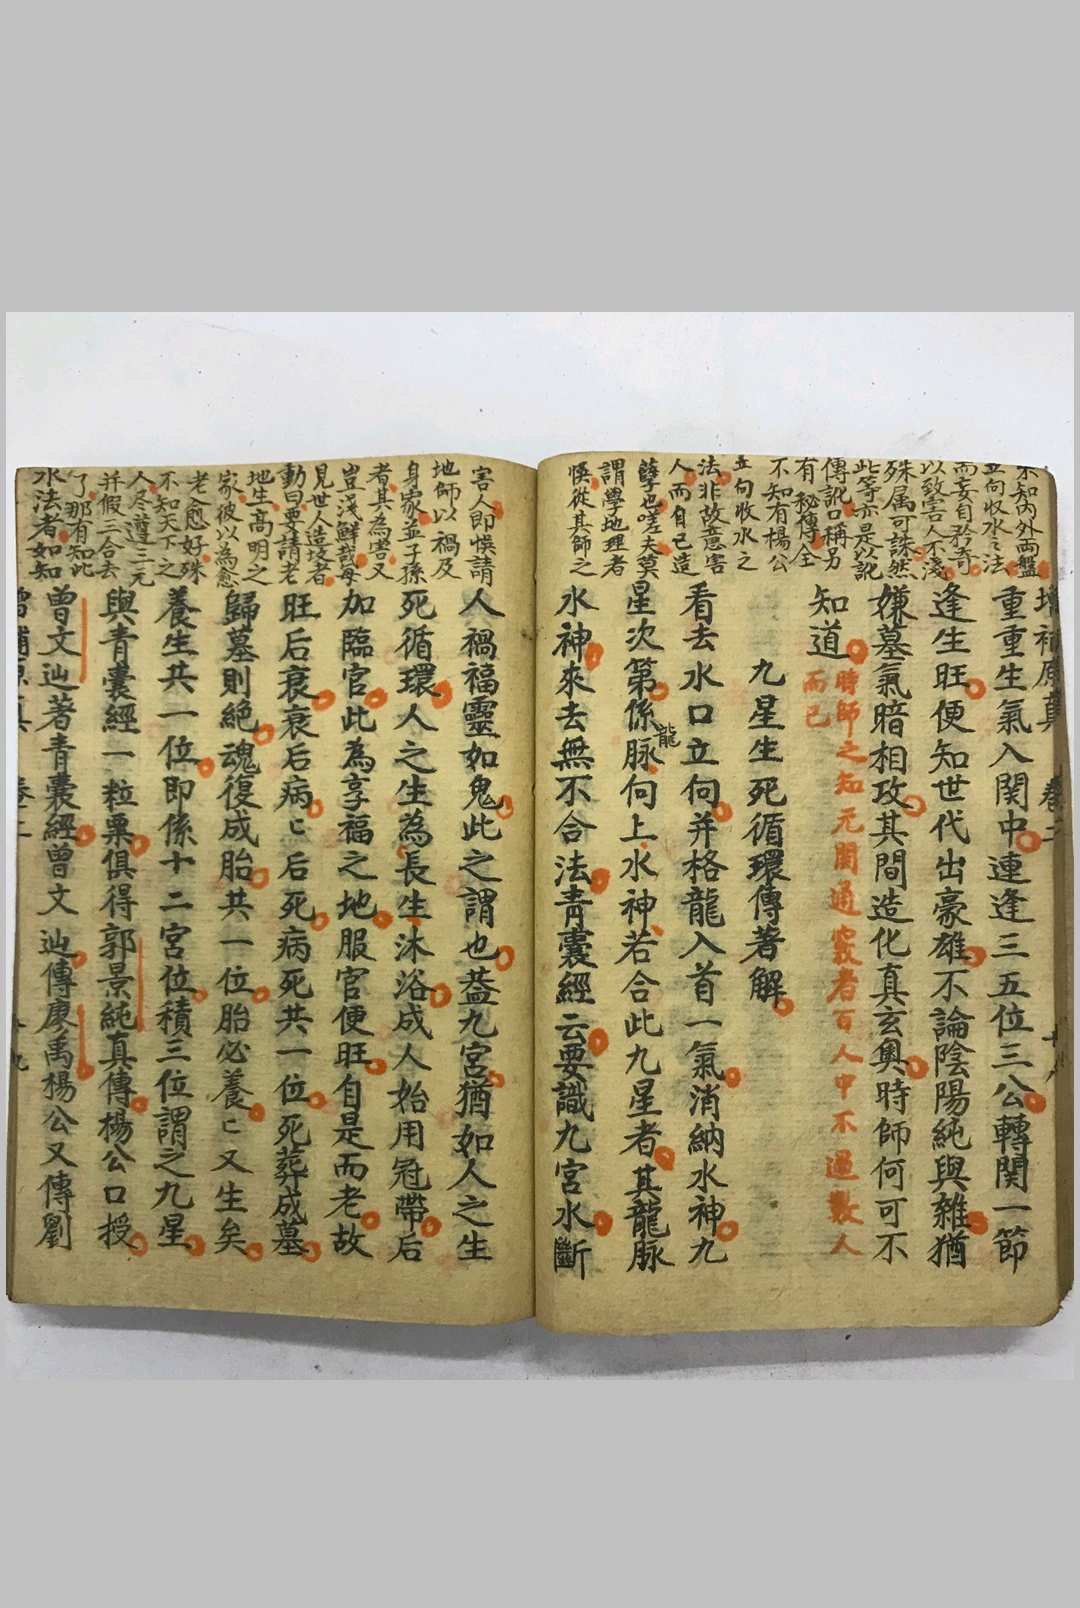 增補原真 卷二
不知內外両盤
立向收水之法
而妄自矜奇
以致害人不淺
殊属可誅然
此等亦是以訛
傳訛口稱另
有秘傳全
不知有楊公
立向收水之
法非故意害
人而自己造
孽也嗟夫莫
謂學地理者
悞從其師之
重重生氣入関中連逢三五位三公轉関一節
逢生旺便知世代出豪雄不論陰陽純與雜猶
嫌墓氣暗相攻其間造化真玄奧時師何可不
知道
時師之知元関通竅者百人中不過數人
而已
九星生死循環傳著解
看去水口立向并格龍入首一氣消納水神九
星次第係脉向上水神若合此九星者其龍脉
龍
水神來去無不合法青囊經云要識九宮水斷
害人即悞請
地師以禍及
身家並子孫
者其為害又
豈淺鮮哉每
見世人造坟者
動曰要請老
地生高明之
家彼以為愈
老愈好殊
不知天下之
人尽遵三元
并假三合去
了那有知此
水法者如知
人禍福靈如鬼此之謂也蓋九宮猶如人之生
死循環人之生為長生沐浴成人始用冠帶后
加臨官此為享福之地服官便旺自是而老故
旺后衰衰后病匕后死病死共一位死葬成墓
歸墓則絕魂復成胎共一位胎必養匕又生矣
養生共一位即係十二宮位積三位謂之九星
與青囊經一粒粟俱得郭景純真傳楊公口授
曾文辿著青囊經曾文辿傳廖禹楊公又傳劉
增補原真 卷二 十九